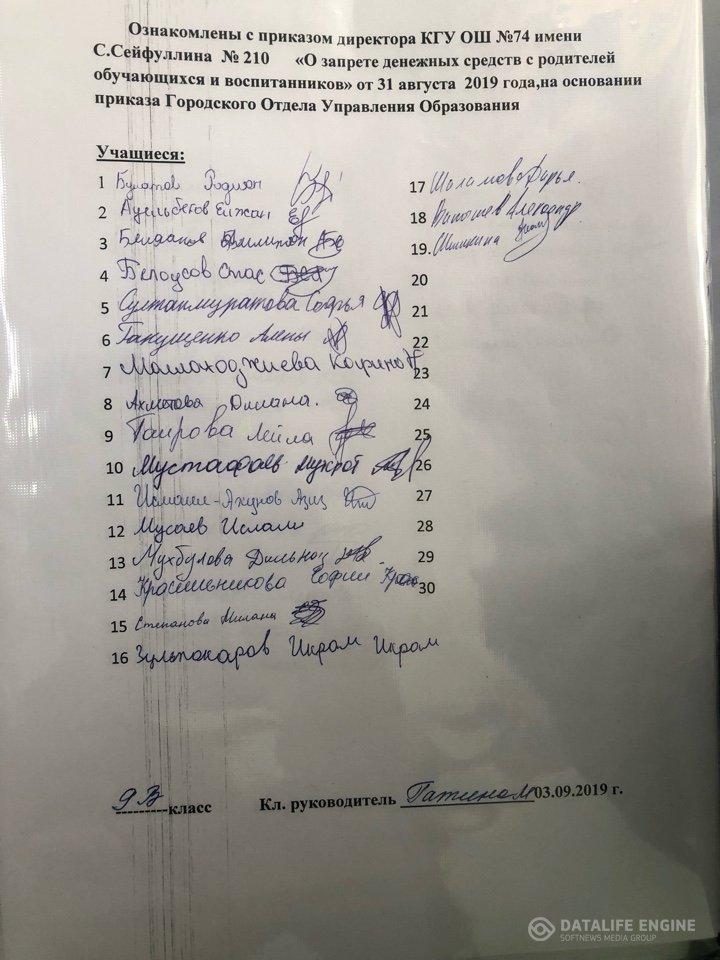 Ознакомлены с приказом директора КГУ ОШ №74 имени
С.Сейфуллина № 210 «О запрете денежных средств с родителей
обучающихся и воспитанников» от 31 августа 2019 года,на основании
приказа Городского Отдела Управления Образования
Учащиеся:
1 Булатов Родион
2 Ауельбеков Елжан
3
4 Белоусов Спас
5 Султанмуратова Софья
6 Ганущенко Алены
7 Маллаходжиева Карина
8 Ахметова Дилана.
9 Таирова Лейла
10 Мустафаев
11 Исмаил-Ахунов Азиз
12 Мусаев Ислам
13 Мухбулова Дильноз
14 Красильникова Софии
15 Степанова Милана
16 Зульпокаров Икрам Икрам
17 Шаламова Дарья.
18 Александр
19. Шишкина
20
21
22
23
24
25
26
27
28
29
30
9 В класс Кл. руководитель 03.09.2019 г.
DATALIFE ENGINE
SOFTNEWS MEDIA GROUP